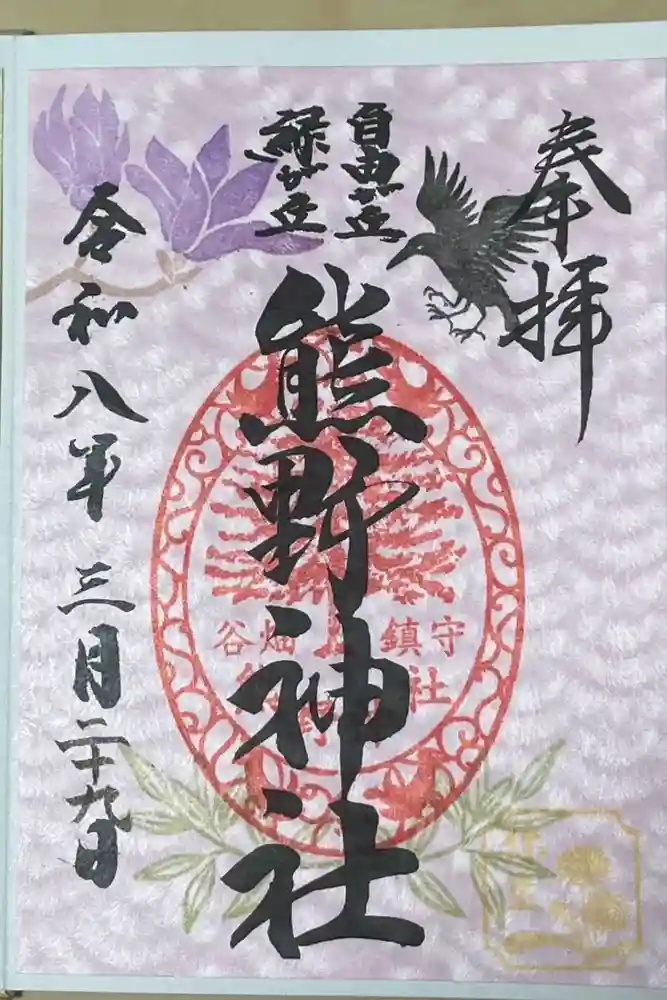 奉拝
自由が丘
緑が丘
熊野神社
谷畑
鎮守
社
令和八年三月二十九日